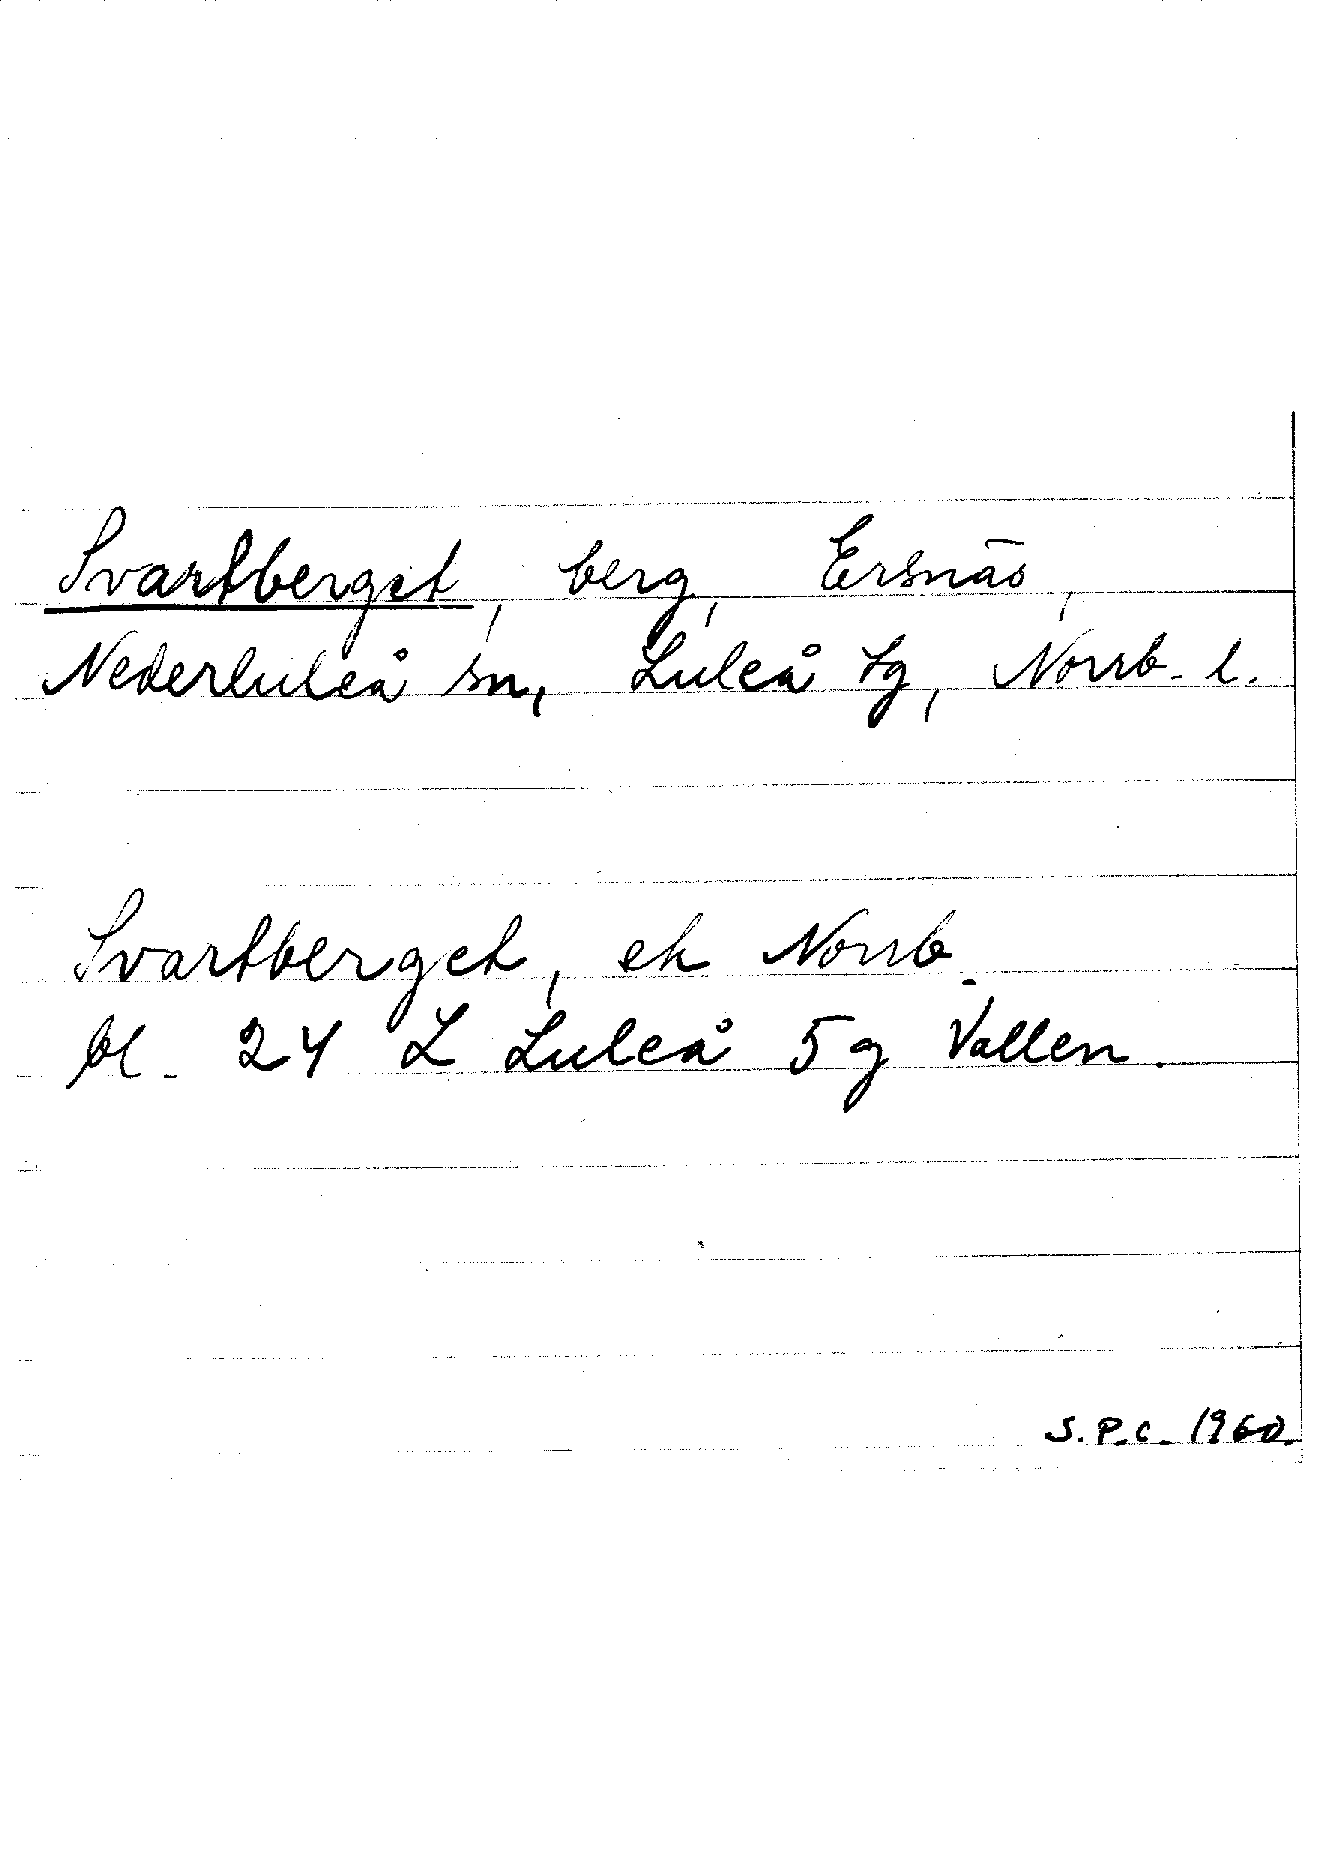 Svartberget, berg, Ersnäs,
Nederluleå sn, Luleå tg, Norrb. l.
Svartberget, ek Norrb.
bl. 24 L Luleå 5g Vallen.
S.P.C. 1960.